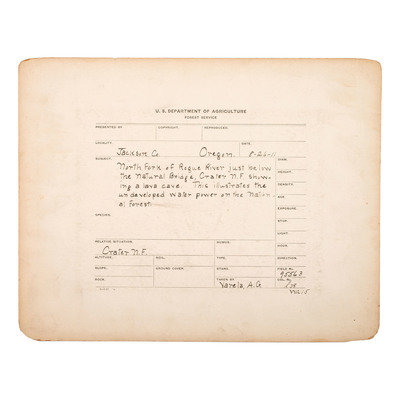 U. S. DEPARTMENT OF AGRICULTURE
FOREST SERVICE
PRESENTED BY COPYRIGHT. REPRODUCED.
LOCALITY. DATE.
Jackson Co. Oregon. 8-26-11
SUBJECT. North Fork of Rogue River just below
the Natural Bridge, Crater N.F. show-
ing a lava cave. This illustrates the
undeveloped water power on the Nation
al Forest.
DIAM.
HEIGHT.
DENSITY.
AGE.
EXPOSURE.
STOP.
LIGHT.
HOUR.
SPECIES.
RELATIVE SITUATION. HUMUS.
Crater N.F.
ALTITUDE. SOIL. TYPE. DIRECTION.
SLOPE. GROUND COVER. STAND. FIELD No.
95563
TAKEN BY
Varela, A.G.
178
Vol. 15